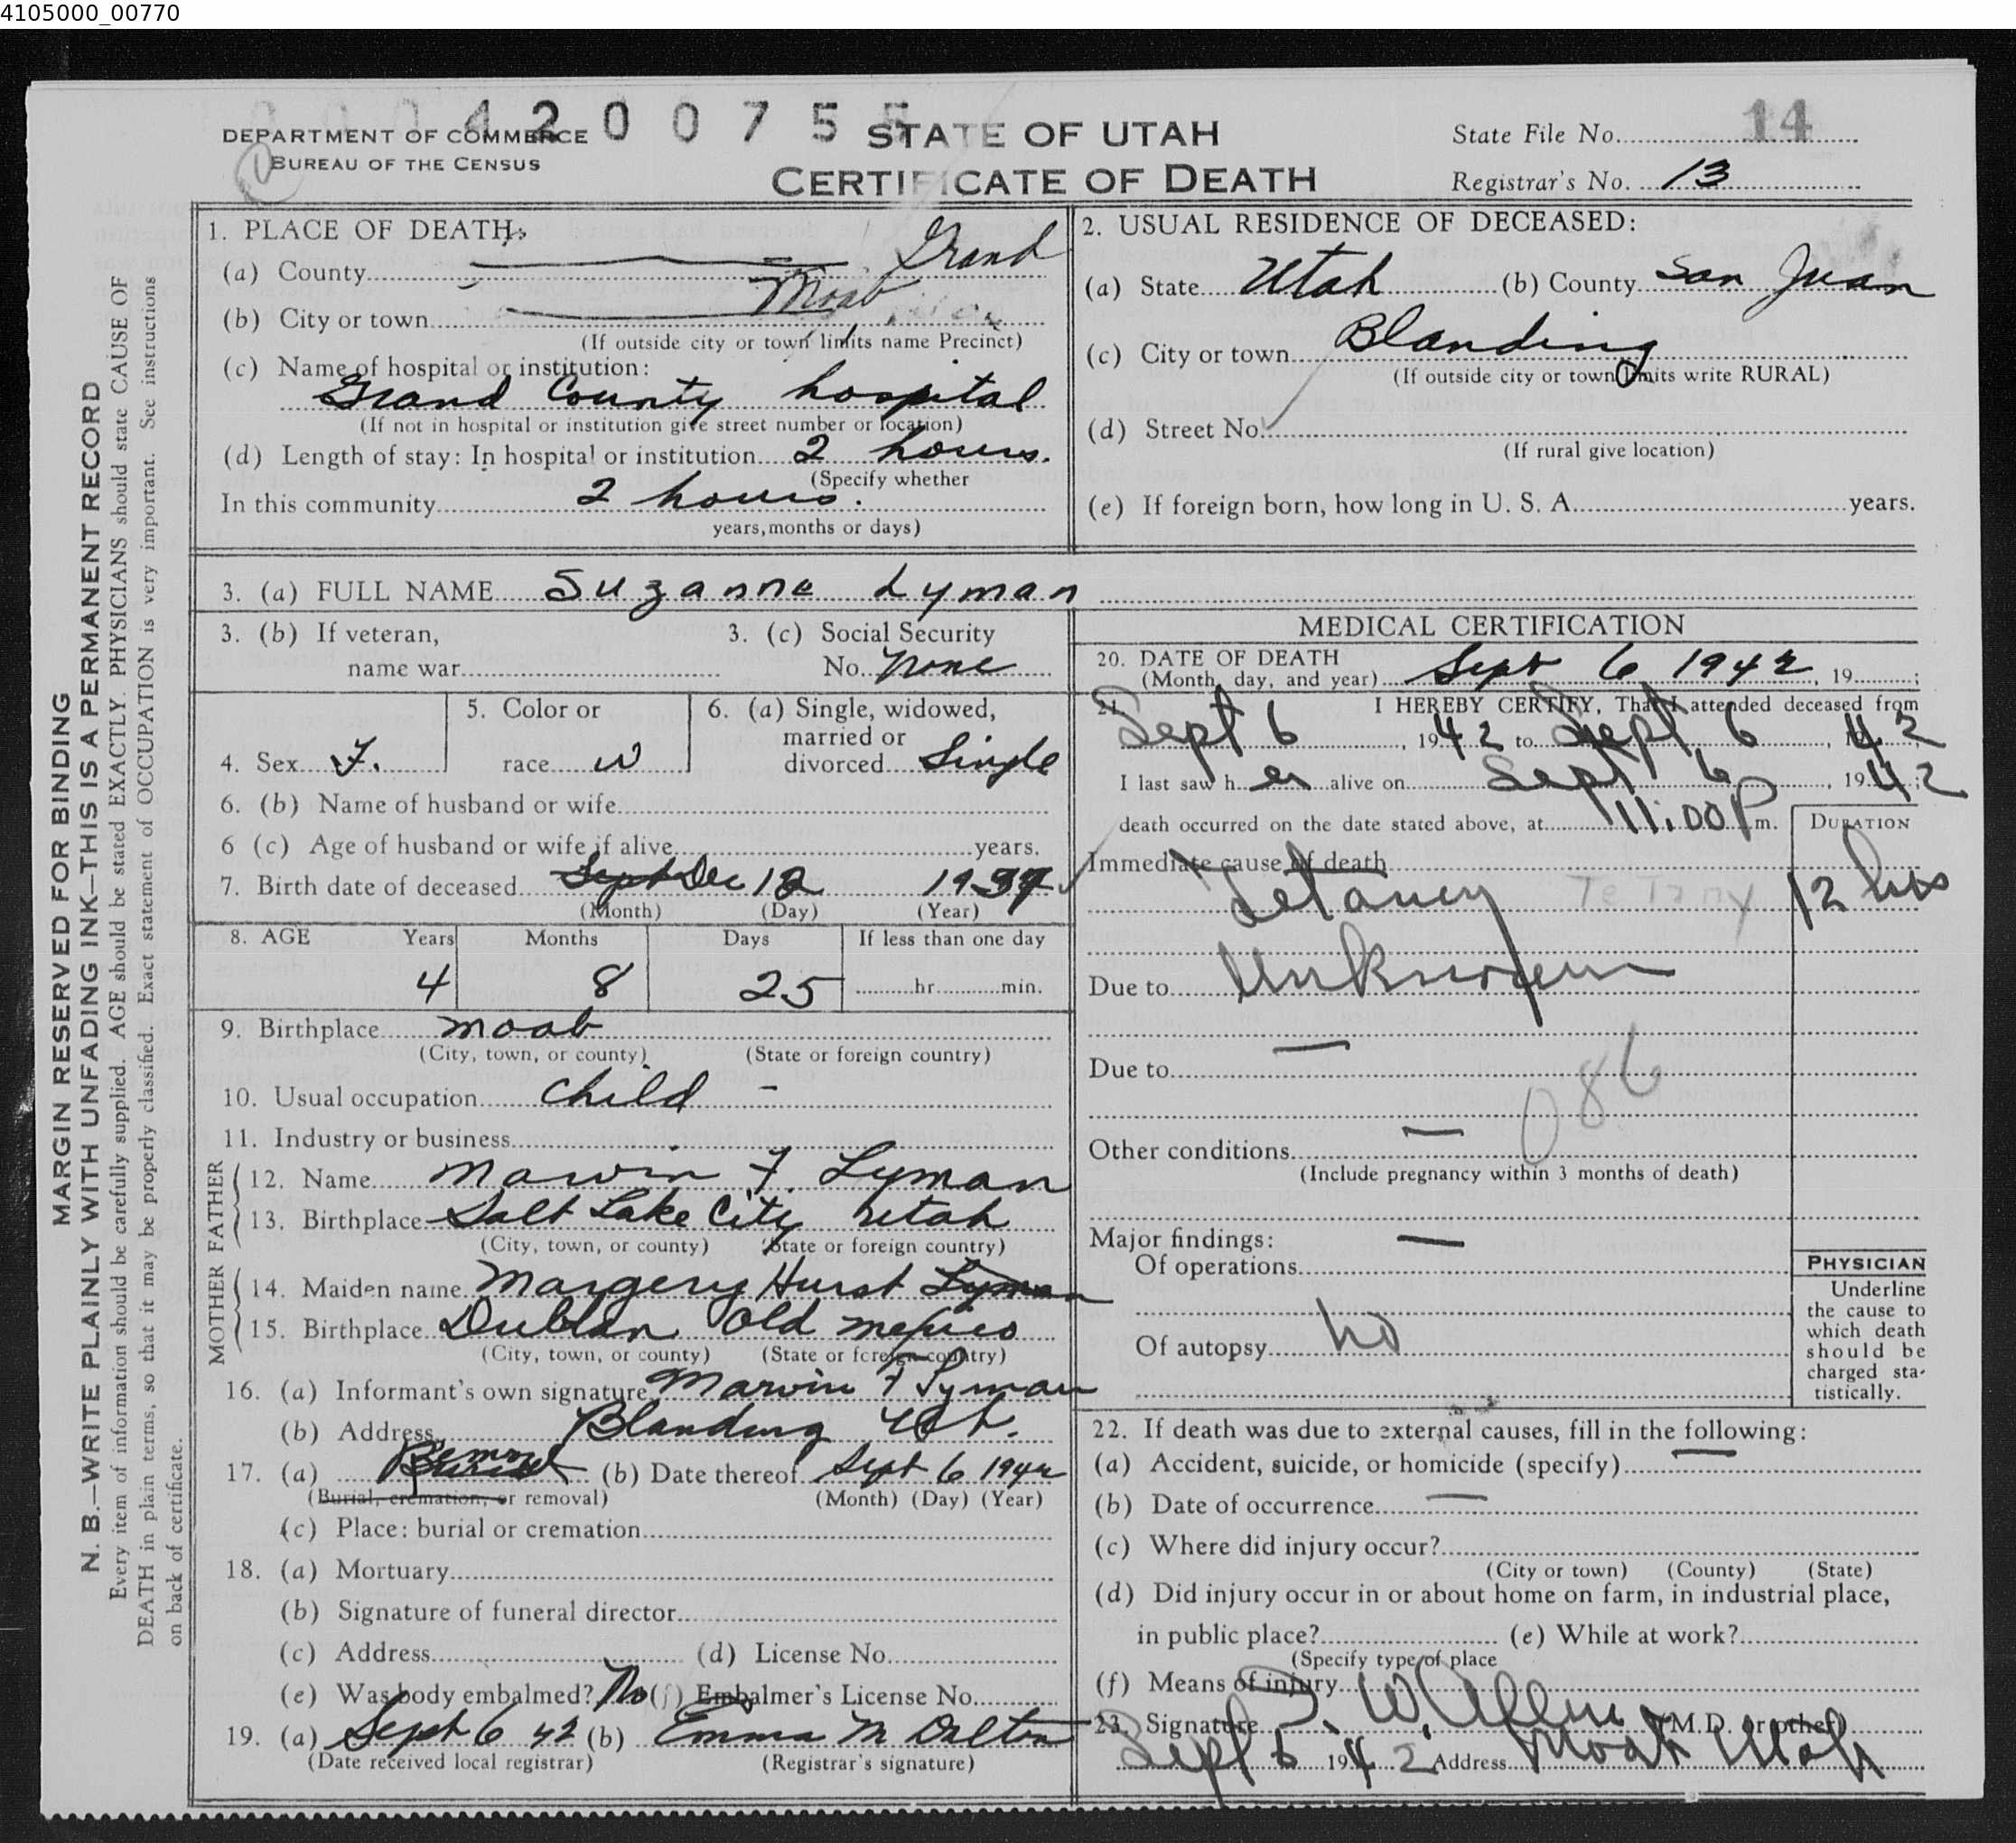 4105000_00770
0 0 0 4 2 0 0 7 5 5
DEPARTMENT OF COMMERCE
BUREAU OF THE CENSUS
1
STATE OF UTAH
CERTIFICATE OF DEATH
State File No. 14
Registrar's No. 13
MARGIN RESERVED FOR BINDING
N. B.—WRITE PLAINLY WITH UNFADING INK—THIS IS A PERMANENT RECORD
Every item of information should be carefully supplied. AGE should be stated EXACTLY. PHYSICIANS should state CAUSE OF
DEATH in plain terms, so that it may be properly classified. Exact statement of OCCUPATION is very important. See instructions
on back of certificate.
1. PLACE OF DEATH:
(a) County Grand
(b) City or town Moab
(If outside city or town limits name Precinct)
(c) Name of hospital or institution:
Grand County hospital
(If not in hospital or institution give street number or location)
(d) Length of stay: In hospital or institution 2 hours.
(Specify whether
In this community 2 hours.
years, months or days)
2. USUAL RESIDENCE OF DECEASED:
(a) State Utah (b) County San Juan
(c) City or town Blanding
(If outside city or town limits write RURAL)
(d) Street No.
(If rural give location)
(e) If foreign born, how long in U. S. A. years.
3. (a) FULL NAME Suzanne Lyman
3. (b) If veteran,
name war
3. (c) Social Security
No. none
4. Sex F.
5. Color or
race w
6. (a) Single, widowed,
married or
divorced Single
6. (b) Name of husband or wife
6 (c) Age of husband or wife if alive years.
7. Birth date of deceased Sept Dec 12 1937
(Month) (Day) (Year)
8. AGE Years Months Days If less than one day
4 8 25 hr. min.
9. Birthplace moab
(City, town, or county) (State or foreign country)
10. Usual occupation child -
11. Industry or business
FATHER
12. Name Marvin F. Lyman
13. Birthplace Salt Lake City Utah
(City, town, or county) (State or foreign country)
MOTHER
14. Maiden name Margery Hurst Lyman
15. Birthplace Dublan Old mexico
(City, town, or county) (State or foreign country)
16. (a) Informant's own signature Marvin F Lyman
(b) Address Blanding Ut.
17. (a) (b) Date thereof Sept 6 1942
(Burial, cremation, or removal) (Month) (Day) (Year)
(c) Place: burial or cremation
18. (a) Mortuary
(b) Signature of funeral director
(c) Address (d) License No.
(e) Was body embalmed? No (f) Embalmer's License No.
19. (a) Sept 6 42 (b) Emma M Dalton
(Date received local registrar) (Registrar's signature)
MEDICAL CERTIFICATION
20. DATE OF DEATH
(Month, day, and year) Sept 6 1942, 19 ;
21. I HEREBY CERTIFY, That I attended deceased from
Sept 6, 1942 to Sept 6, 1942;
I last saw her alive on Sept 6, 1942;
death occurred on the date stated above, at 11:00 P m.
DURATION
Immediate cause of death
Tetaney Tetany 12 hrs
Due to Unknown
Due to
086
Other conditions
(Include pregnancy within 3 months of death)
Major findings:
Of operations
Of autopsy no
PHYSICIAN
Underline
the cause to
which death
should be
charged sta-
tistically.
22. If death was due to external causes, fill in the following:
(a) Accident, suicide, or homicide (specify)
(b) Date of occurrence
(c) Where did injury occur?
(City or town) (County) (State)
(d) Did injury occur in or about home on farm, in industrial place,
in public place? (e) While at work?
(Specify type of place
(f) Means of injury
23. Signature W. Allen (M.D. or other)
Sept 6 1942 Address Moab Utah